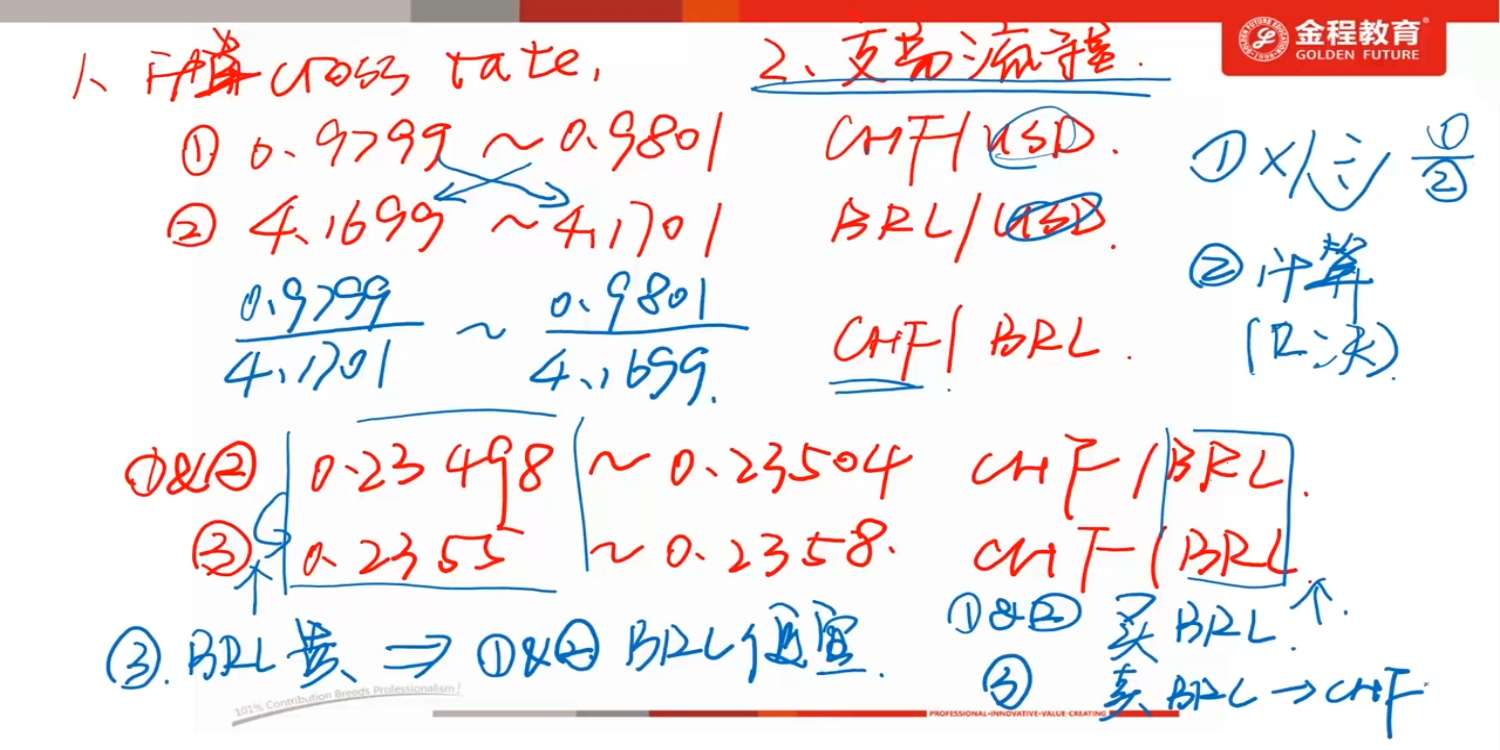 金程教育®
GOLDEN FUTURE
1、计算 cross rate.
2、交易流程.
① 0.9799 ~ 0.9801 CHF/USD.
② 4.1699 ~ 4.1701 BRL/USD.
0.9799/4.1701 ~ 0.9801/4.1699. CHF/BRL.
① ×/(÷) ①/②
② 计算
①&② 0.23498 ~ 0.23504 CHF/BRL.
③ 0.2355 ~ 0.2358. CHF/BRL.
③. BRL贵 ⇒ ①&② BRL便宜.
①&② 买 BRL ↑.
③ 卖 BRL → CHF
101% Contribution Breeds Professionalism!
PROFESSIONAL·INNOVATIVE·VALUE·CREATING